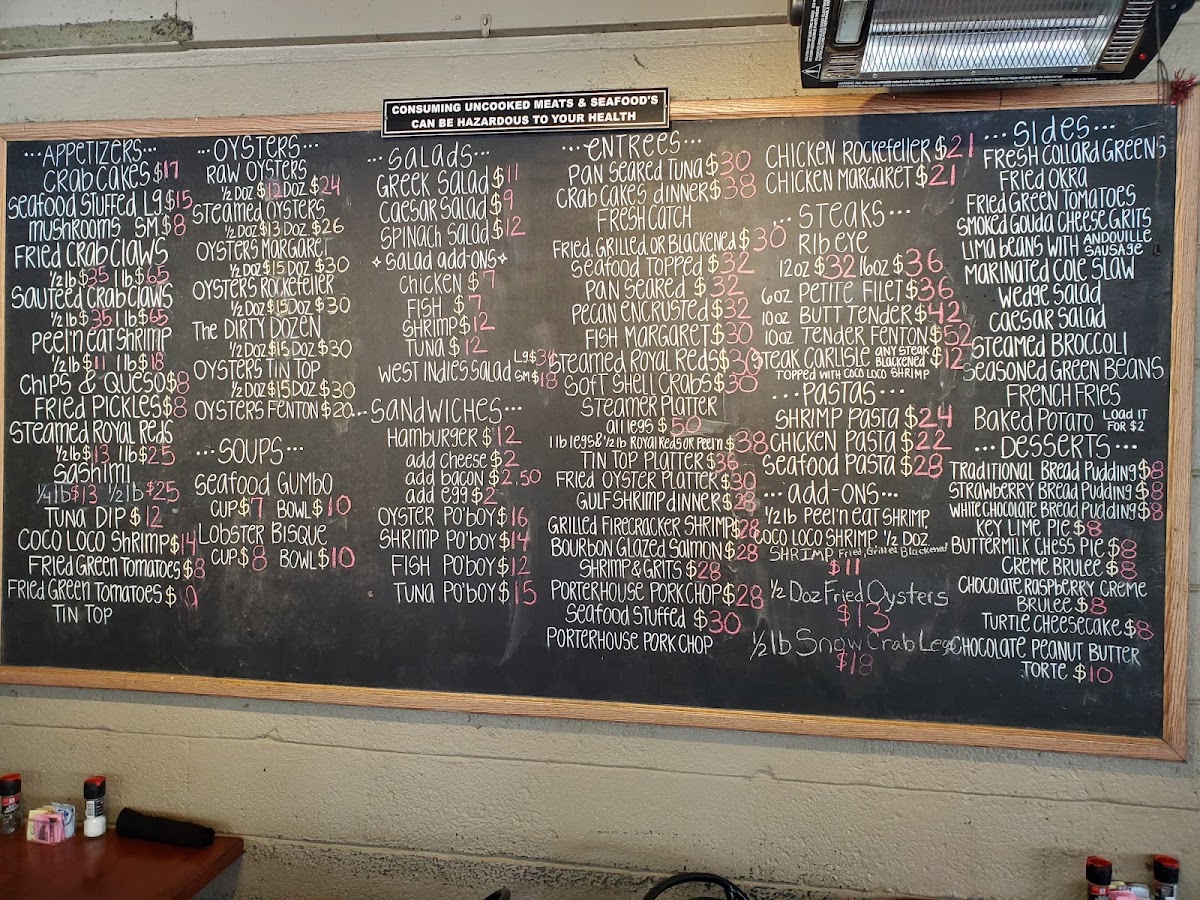 CONSUMING UNCOOKED MEATS & SEAFOOD'S
CAN BE HAZARDOUS TO YOUR HEALTH
...APPETIZERS...
CRAB CAKES $17
SEAFOOD STUFFED Lg $15
MUSHROOMS SM $8
FRIED CRAB CLAWS
1/2 lb $35 1 lb $65
SAUTEED CRAB CLAWS
1/2 lb $35 1 lb $65
PEEL'N EAT SHRIMP
1/2 lb $11 1 lb $18
CHIPS & QUESO $8
FRIED PICKLES $8
STEAMED ROYAL REDS
1/2 lb $13 1 lb $25
SASHIMI
1/4 lb $13 1/2 lb $25
TUNA DIP $12
COCO LOCO SHRIMP $14
FRIED GREEN TOMATOES $8
FRIED GREEN TOMATOES $9
TIN TOP
...OYSTERS...
RAW OYSTERS
1/2 DOZ $12 DOZ $24
STEAMED OYSTERS
1/2 DOZ $13 DOZ $26
OYSTERS MARGARET
1/2 DOZ $15 DOZ $30
OYSTERS ROCKEFELLER
1/2 DOZ $15 DOZ $30
THE DIRTY DOZEN
1/2 DOZ $15 DOZ $30
OYSTERS TIN TOP
1/2 DOZ $15 DOZ $30
OYSTERS FENTON $20
...SOUPS...
SEAFOOD GUMBO
CUP $7 BOWL $10
LOBSTER BISQUE
CUP $8 BOWL $10
...SALADS...
GREEK SALAD $11
CAESAR SALAD $9
SPINACH SALAD $12
SALAD ADD-ONS
CHICKEN $7
FISH $7
SHRIMP $12
TUNA $12
WEST INDIES SALAD Lg SM $18
...SANDWICHES...
HAMBURGER $12
add CHEESE $2
add BACON $2.50
add EGG $2
OYSTER PO'BOY $16
SHRIMP PO'BOY $14
FISH PO'BOY $12
TUNA PO'BOY $15
...ENTREES...
PAN SEARED TUNA $30
CRAB CAKES DINNER $38
FRESH CATCH
FRIED, GRILLED OR BLACKENED $30
SEAFOOD TOPPED $32
PAN SEARED $32
PECAN ENCRUSTED $32
FISH MARGARET $30
STEAMED ROYAL REDS $30
SOFT SHELL CRABS $30
STEAMER PLATTER
all legs $50
1 lb legs & 1/2 lb ROYAL REDS OR PEEL'N $38
TIN TOP PLATTER $36
FRIED OYSTER PLATTER $30
GULF SHRIMP DINNER $28
GRILLED FIRECRACKER SHRIMP $28
BOURBON GLAZED SALMON $28
SHRIMP & GRITS $28
PORTERHOUSE PORK CHOP $28
SEAFOOD STUFFED $30
PORTERHOUSE PORK CHOP
CHICKEN ROCKEFELLER $21
CHICKEN MARGARET $21
...STEAKS...
RIB EYE
12oz $32 16oz $36
6oz PETITE FILET $36
10oz BUTT TENDER $42
10oz TENDER FENTON $52
STEAK CARLISLE ANY STEAK BLACKENED $12
TOPPED WITH COCO LOCO SHRIMP
...PASTAS...
SHRIMP PASTA $24
CHICKEN PASTA $22
SEAFOOD PASTA $28
...ADD-ONS...
1/2 lb PEEL'N EAT SHRIMP,
COCO LOCO SHRIMP, 1/2 DOZ.
SHRIMP Fried, Grilled, Blackened
$11
1/2 Doz Fried Oysters
$13
1/2 lb Snow Crab Legs
$18
...SIDES...
FRESH COLLARD GREENS
FRIED OKRA
FRIED GREEN TOMATOES
SMOKED GOUDA CHEESE GRITS
LIMA BEANS WITH ANDOUILLE SAUSAGE
MARINATED COLE SLAW
WEDGE SALAD
CAESAR SALAD
STEAMED BROCCOLI
SEASONED GREEN BEANS
FRENCH FRIES
BAKED POTATO LOAD IT FOR $2
...DESSERTS...
TRADITIONAL BREAD PUDDING $8
STRAWBERRY BREAD PUDDING $8
WHITE CHOCOLATE BREAD PUDDING $8
KEY LIME PIE $8
BUTTERMILK CHESS PIE $8
CREME BRULEE $8
CHOCOLATE RASPBERRY CREME
BRULEE $8
TURTLE CHEESECAKE $8
CHOCOLATE PEANUT BUTTER
TORTE $10